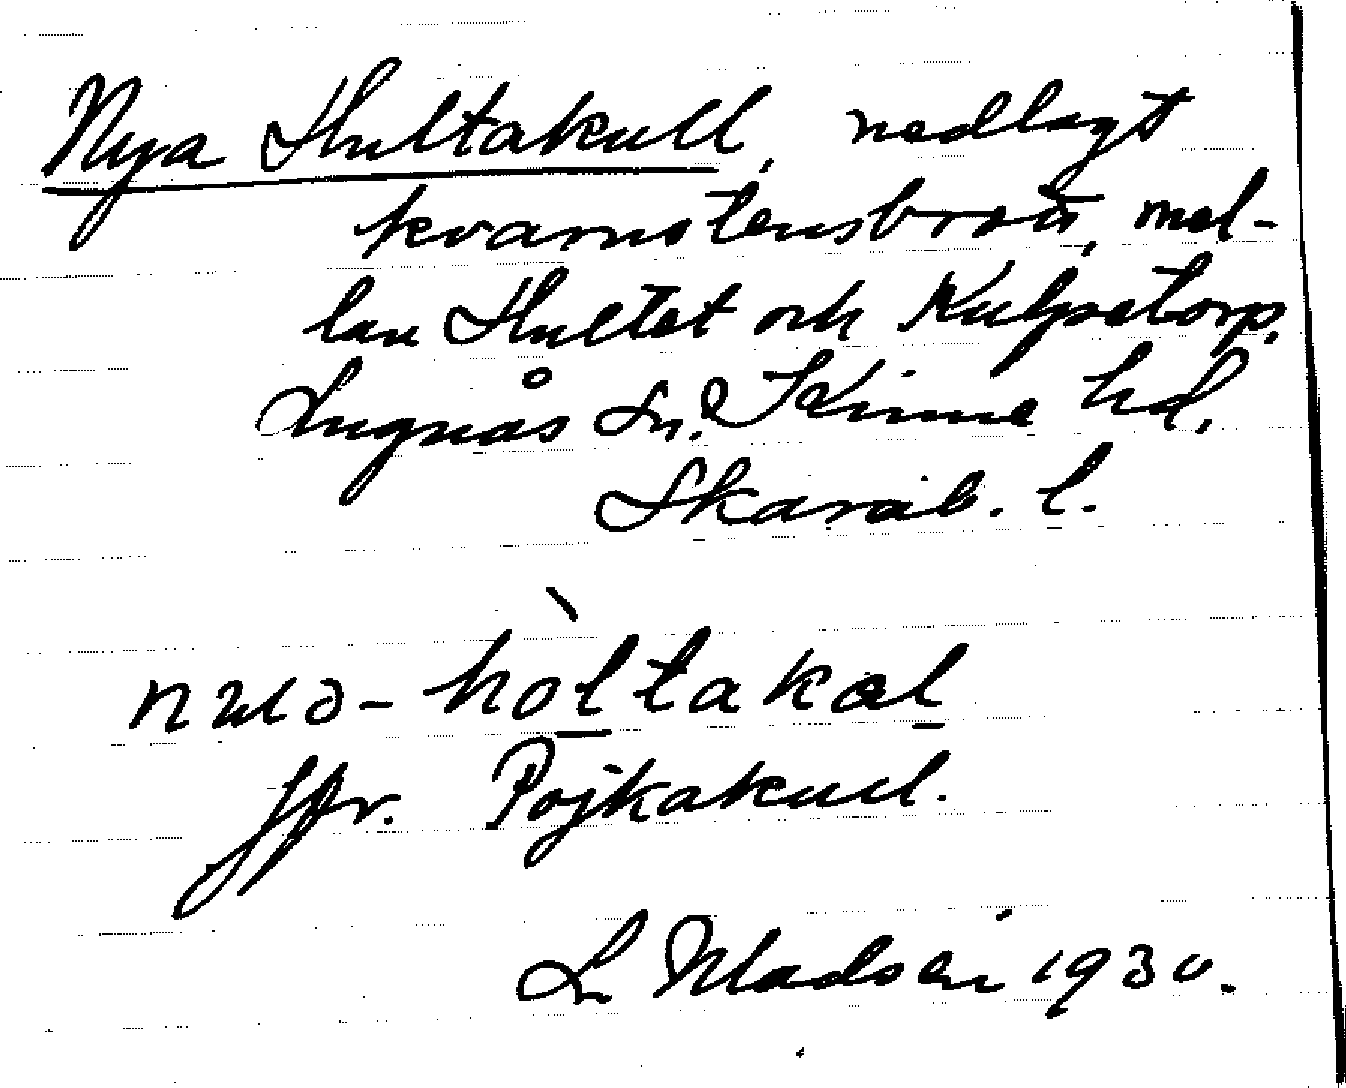 Nya Hultakull, nedlagt
kvarnstensbrott, mel-
lan Hultet och Kulpetorp.
Lugnås sn. Kinne hd.
Skarab. l.
hòltakal
Jfr. Pojkakull.
L Madsén 1930.